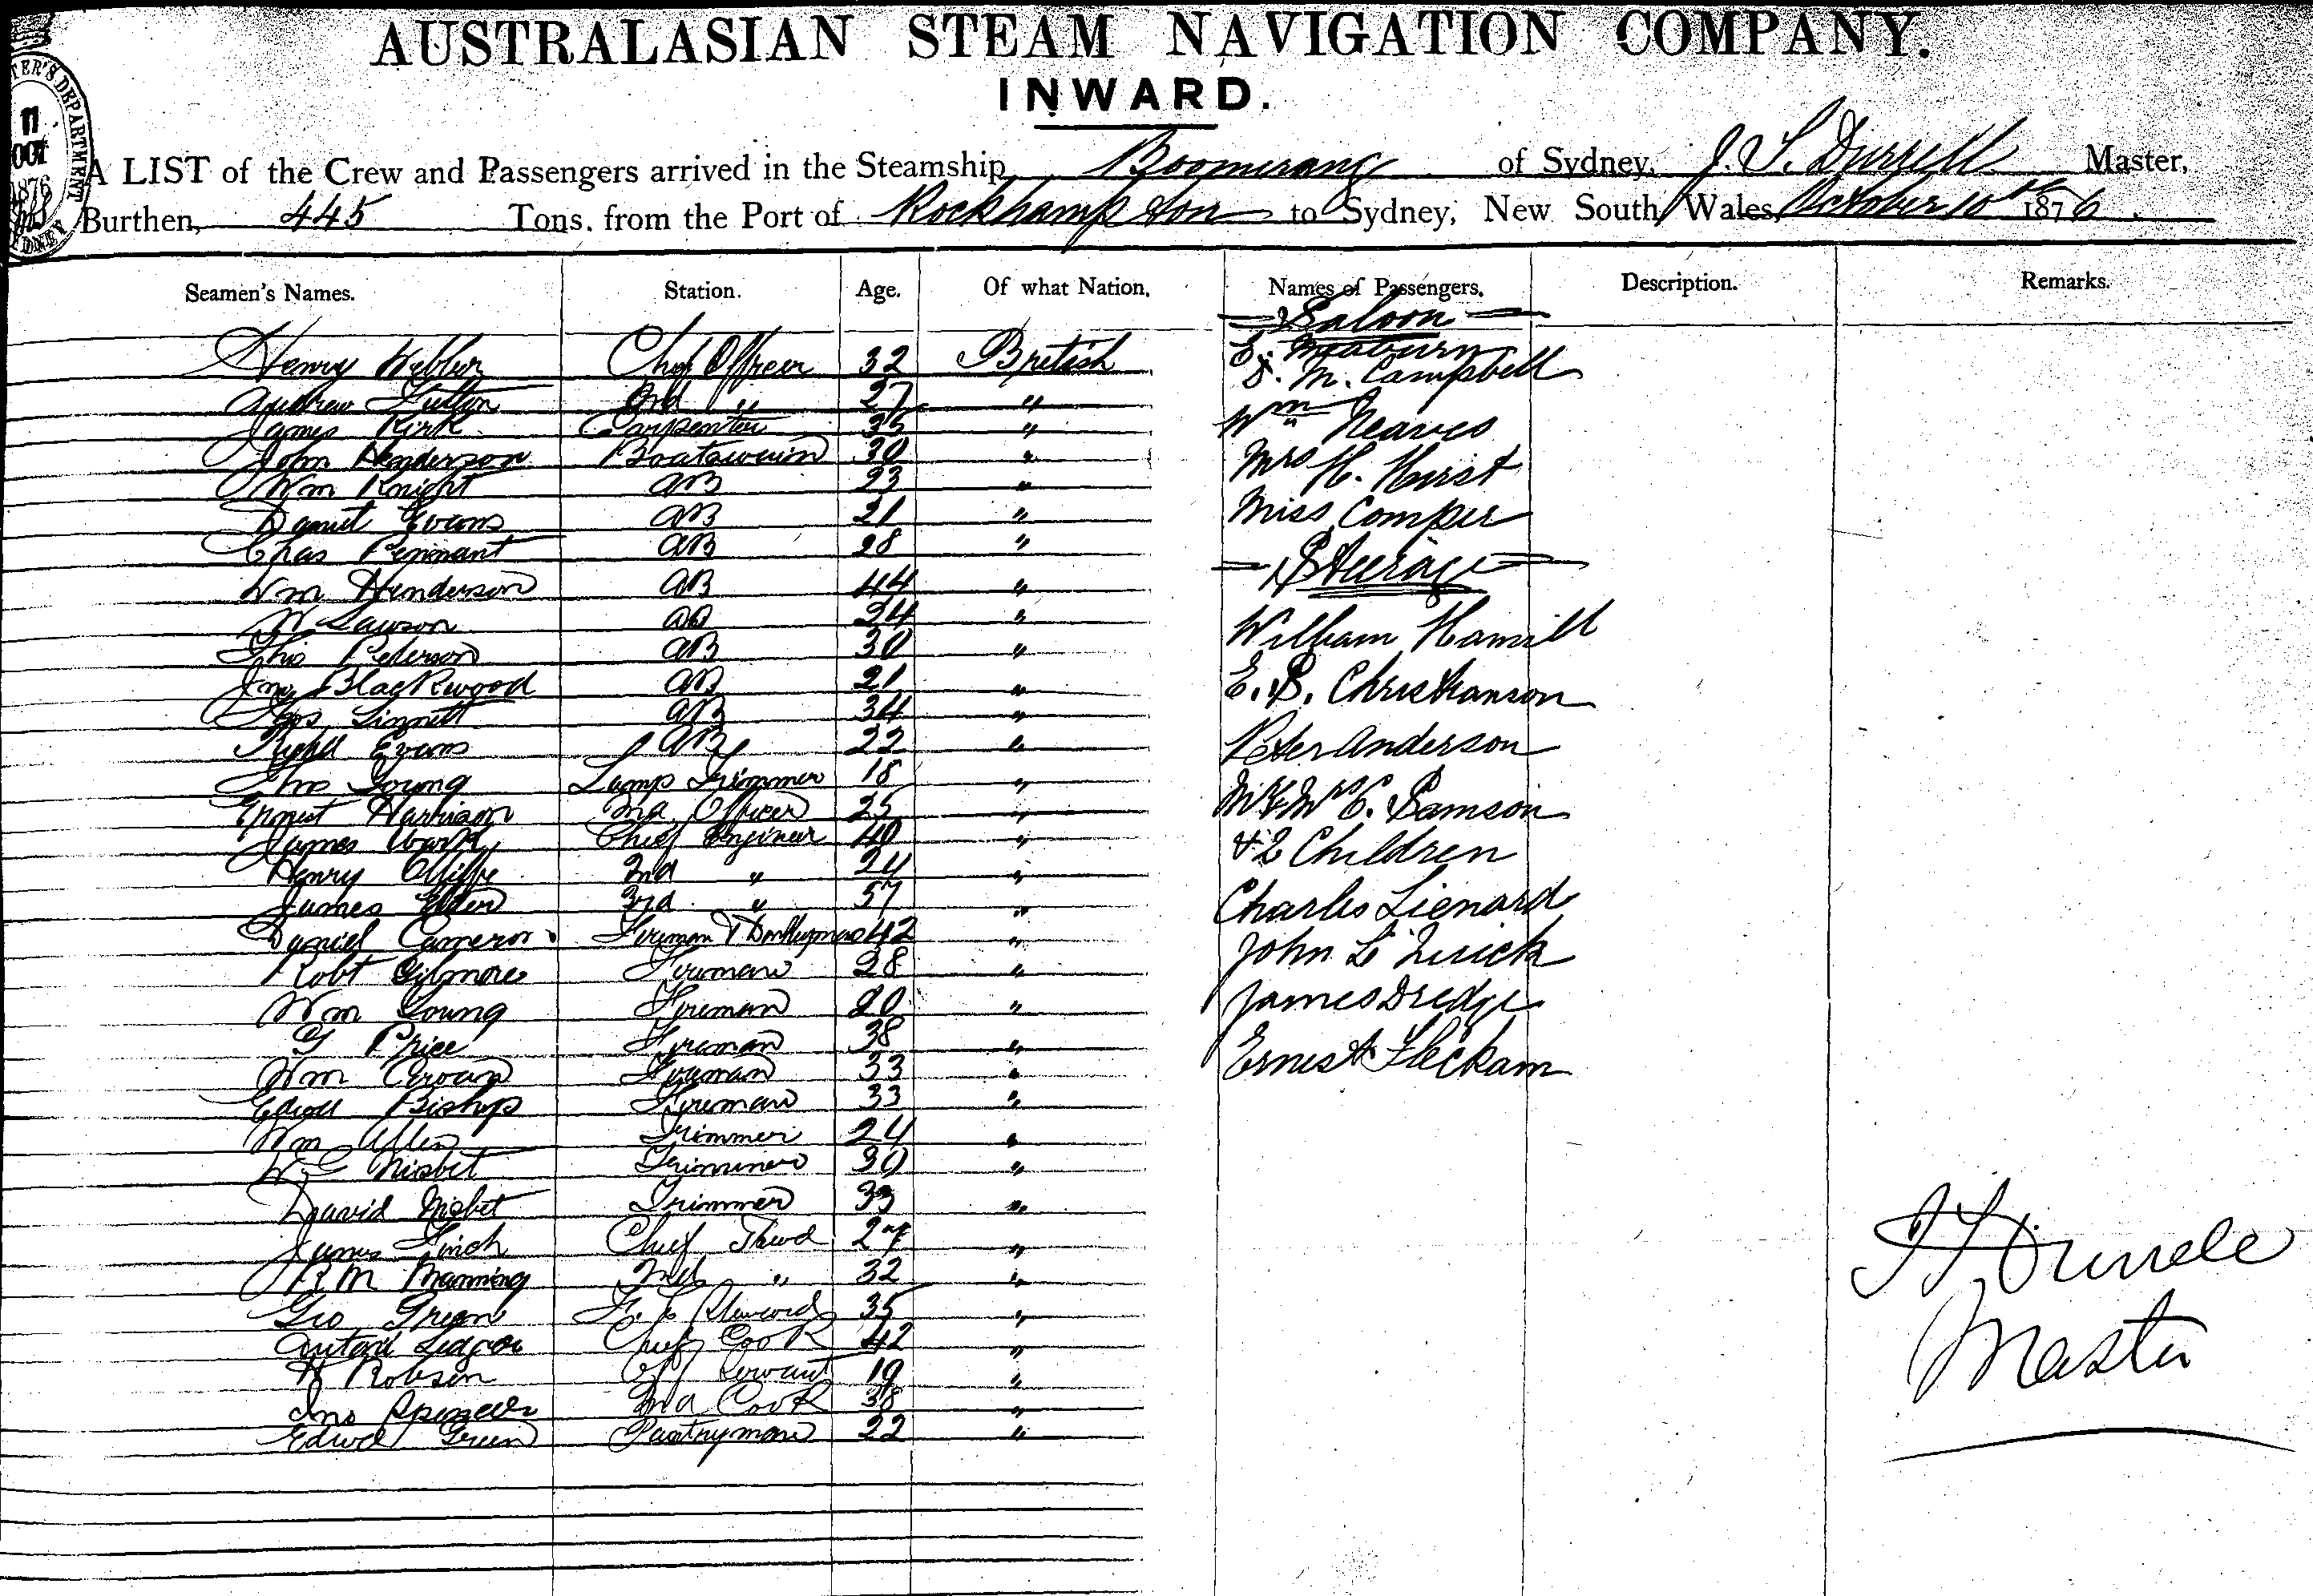 AUSTRALASIAN STEAM NAVIGATION COMPANY.
INWARD.
11
OCT
1876
A LIST of the Crew and Passengers arrived in the Steamship, Boomerang of Sydney, J. S. Durrell Master,
Burthen, 445 Tons, from the Port of Rockhampton to Sydney, New South Wales, October 10th 1876.
Seamen's Names. Station. Age. Of what Nation. Names of Passengers. Description. Remarks.
Saloon
Henry Webber Chief Officer 32 British
E. Meaburn
D. M. Campbell
Andrew Fulton 2nd " 27 "
James Kirk Carpenter 35 "
Wm Neaves
John Henderson Boatswain 30 "
Mrs H. Hurst
Wm Knight AB 23 "
Daniel Evans AB 21 "
Miss Comper
Chas Pennant AB 28 "
Steerage
Wm Henderson AB 44 "
W Lawson AB 24 "
William Hamill
Thos Peterson AB 30 "
Jno Blackwood AB 21 "
E. S. Christianson
Thos Linnett AB 34 "
Richd Evans AB 22 "
Peter Anderson
Thos Young Lamp Trimmer 18 "
Ernest Harrison 2nd Officer 25 "
Mr & Mrs C. Samson
James Wark Chief Engineer 40 "
& 2 Children
Henry Olliffe 2nd " 24 "
James Elder 3rd " 57 "
Charles Lienard
Daniel Cameron Fireman & Donkeyman 42 "
John Le Quick
Robt Gilmore Fireman 28 "
Wm Young Fireman 20 "
James Dredge
G Price Fireman 38 "
Wm Fireman 33 "
Ernest Fleckam
Edwd Bishop Fireman 33 "
Wm Allen Trimmer 24 "
W G Nisbet Trimmer 30 "
David Nisbet Trimmer 33 "
James Finch Chief Stewd 27 "
R M Manning 2nd " 32 "
Geo Green F. C. Steward 35 "
Chief Cook 42 "
H Robson Servant 19 "
Jno Spencer 2nd Cook 38 "
Edwd Green Pantryman 22 "
J S Durrell
Master